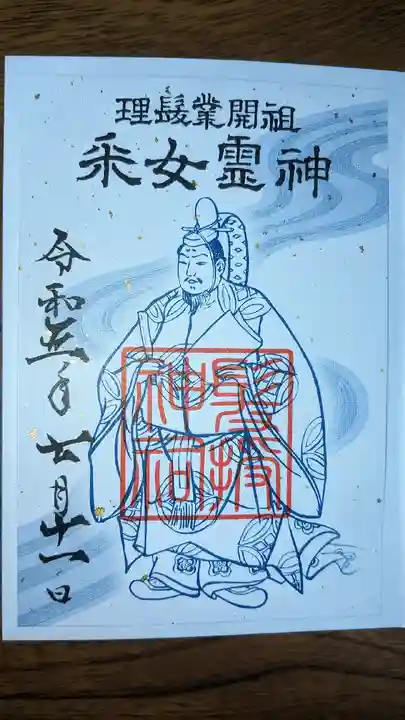 理髪業開祖
采女霊神
令和五年七月十一日